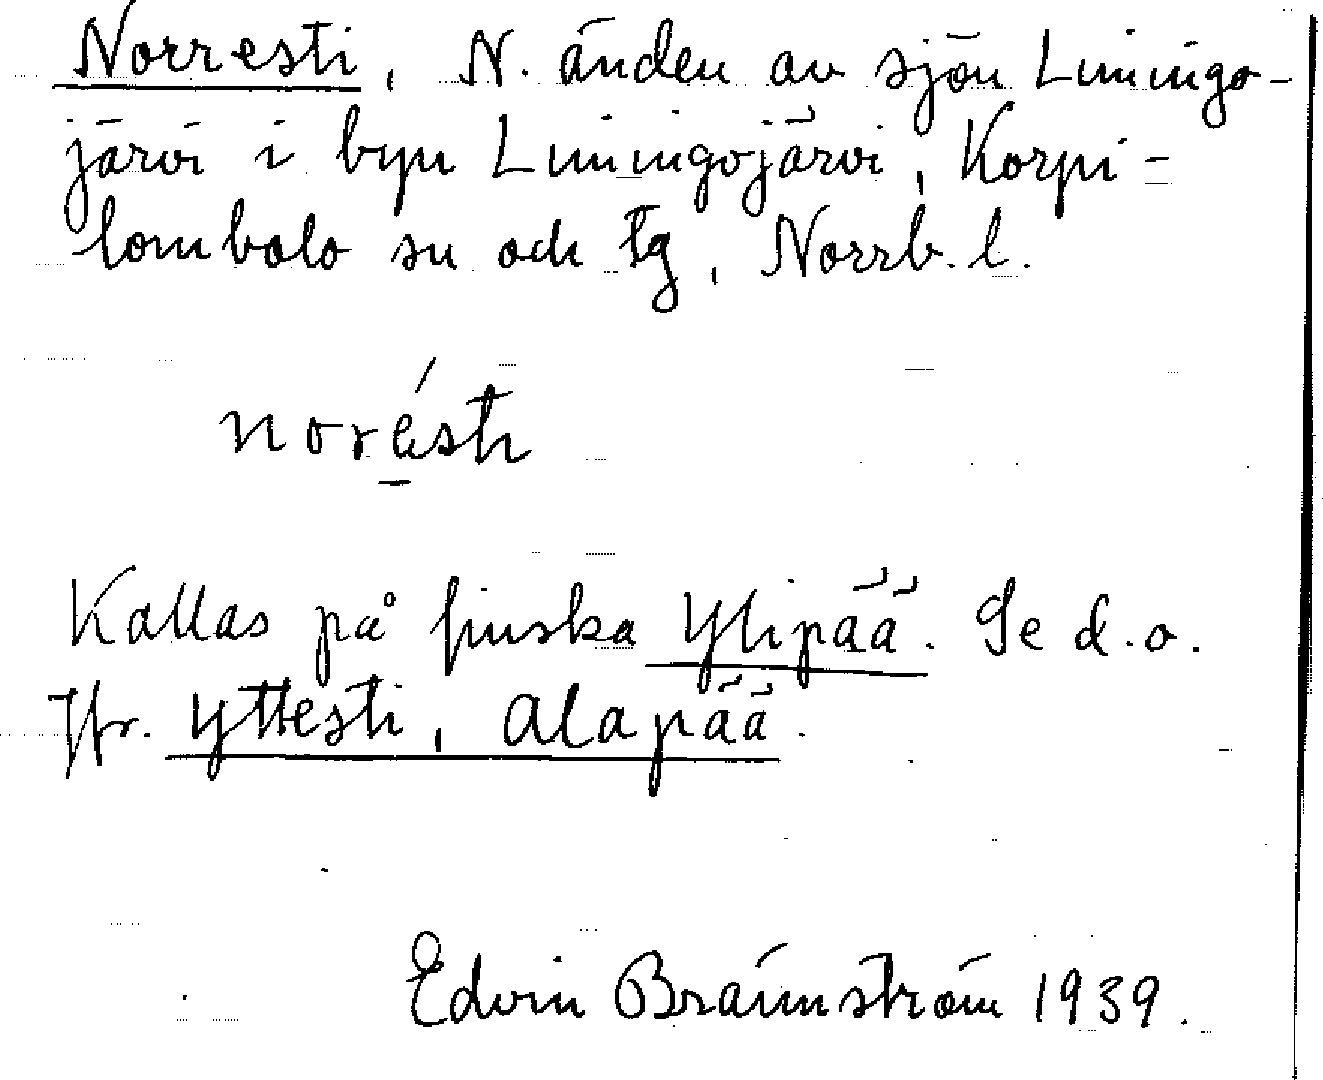 Norresti, N. änden av sjön Liningo-
järvi i byn Liningojärvi, Korpi-
lombolo sn och tg, Norrb. l.
norésti
Kallas på finska Ylipää. Se d. o.
Jfr. Yttesti, Alapää.
Edvin Brännström 1939.